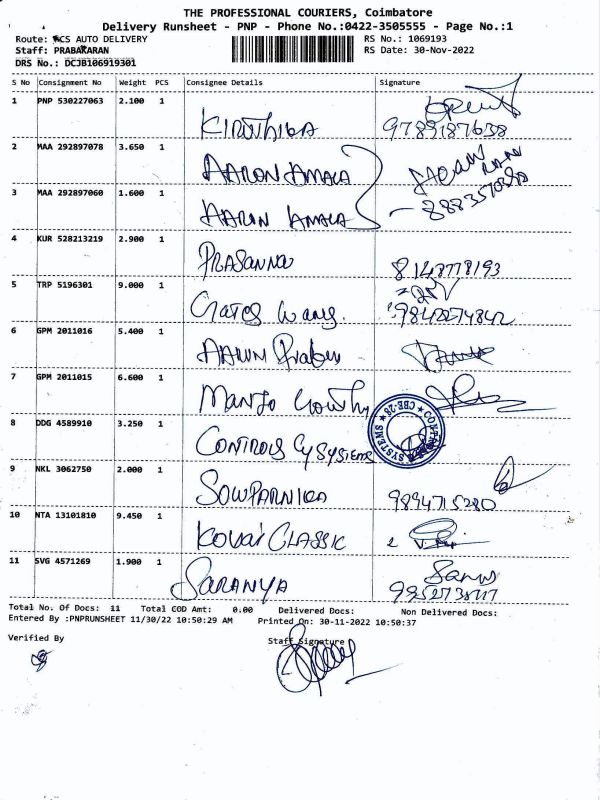 THE PROFESSIONAL COURIERS, Coimbatore
Delivery Runsheet - PNP - Phone No.:0422-3505555 - Page No.:1
Route: CS AUTO DELIVERY
RS No.: 1069193
Staff: PRABAKARAN
RS Date: 30-Nov-2022
DRS No.: DCJB106919301
S No Consignment No Weight PCS Consignee Details Signature
1 PNP 530227063 2.100 1 KIRUTHIKA 9789187638
2 MAA 292897078 3.650 1 AARON AMALA
3 MAA 292897060 1.600 1 AARON AMALA
4 KUR 528213219 2.900 1 PRASANNA 8148778193
5 TRP 5196301 9.000 1 9842274842
6 GPM 2011016 5.400 1 ARUN Prabu
7 GPM 2011015 6.600 1 MANJO
8 DDG 4589910 3.250 1 CONTROLS SYSTEMS
9 NKL 3062750 2.000 1 SOWPARNIKA 9894715280
10 NTA 13101810 9.450 1 KOVAI CLASSIC
11 SVG 4571269 1.900 1 SARANYA
Total No. Of Docs: 11 Total COD Amt: 0.00 Delivered Docs: Non Delivered Docs:
Entered By :PNPRUNSHEET 11/30/22 10:50:29 AM Printed On: 30-11-2022 10:50:37
Verified By Staff Signature